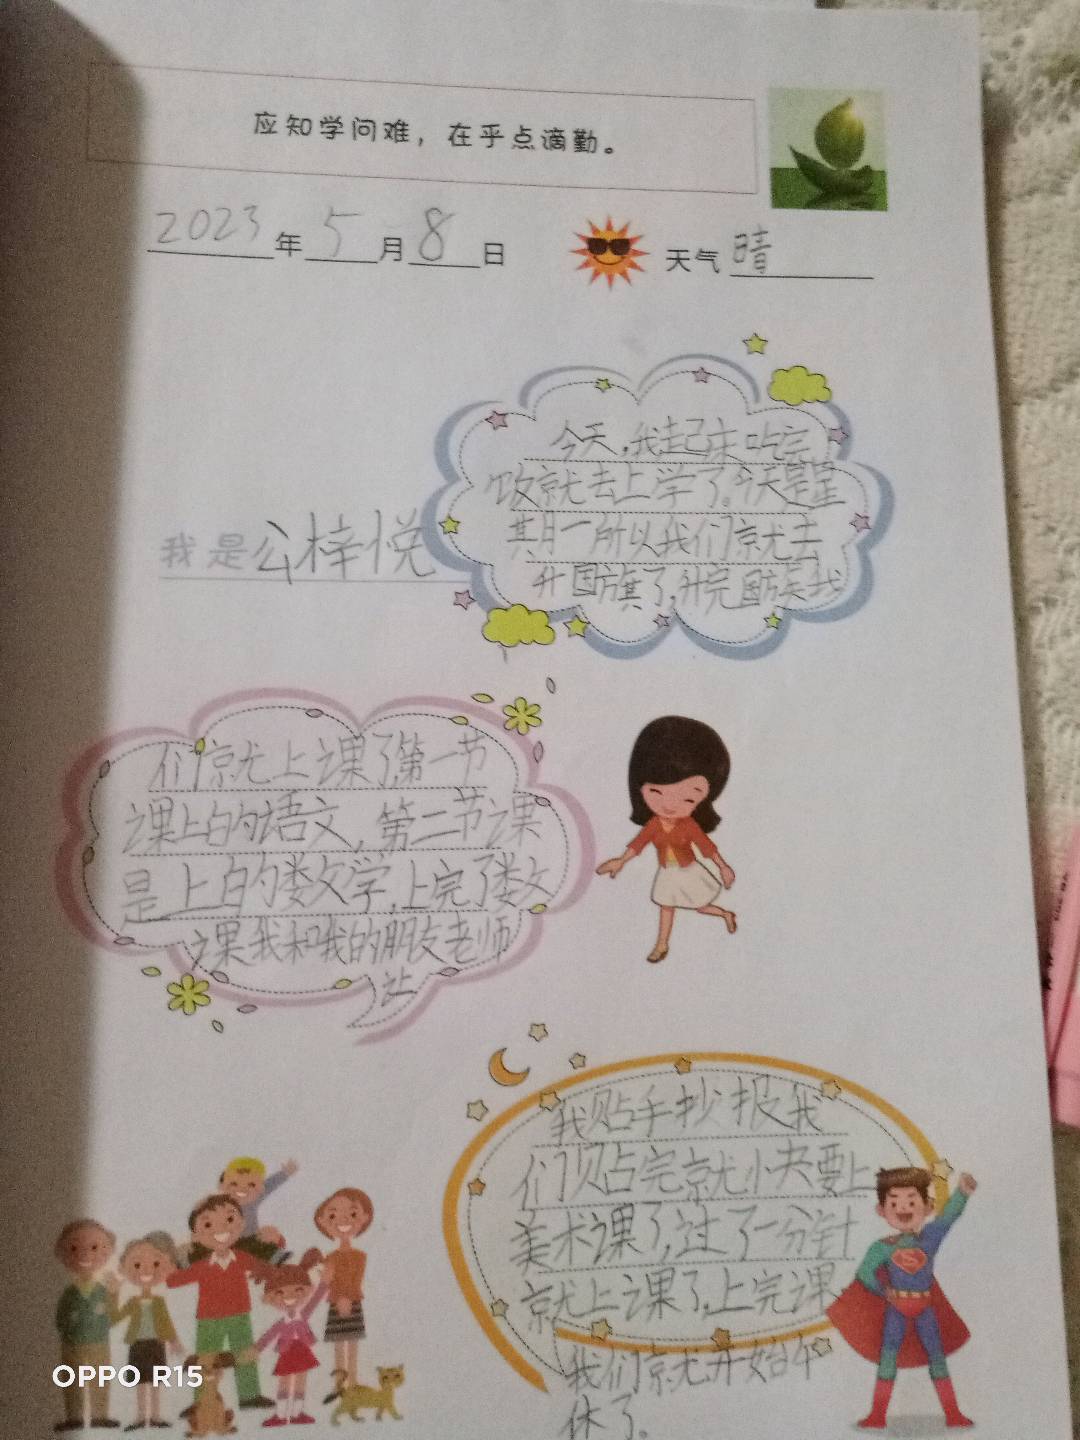 应知学问难，在乎点滴勤。
2023年5月8日 天气 晴
今天，我起床吃完
饭就去上学了。今天是星
其月一所以我们就去
升国旗了，升完国旗我
我是公梓悦
们就上课了，第一节
课上的语文，第二节课
是上的数学，上完了数
课我和我的朋友老师
让
我贴手抄报我
们贴完就小夹要上
美术课了，过了一分针
就上课了，上完课
我们就开始午
休了。
OPPO R15